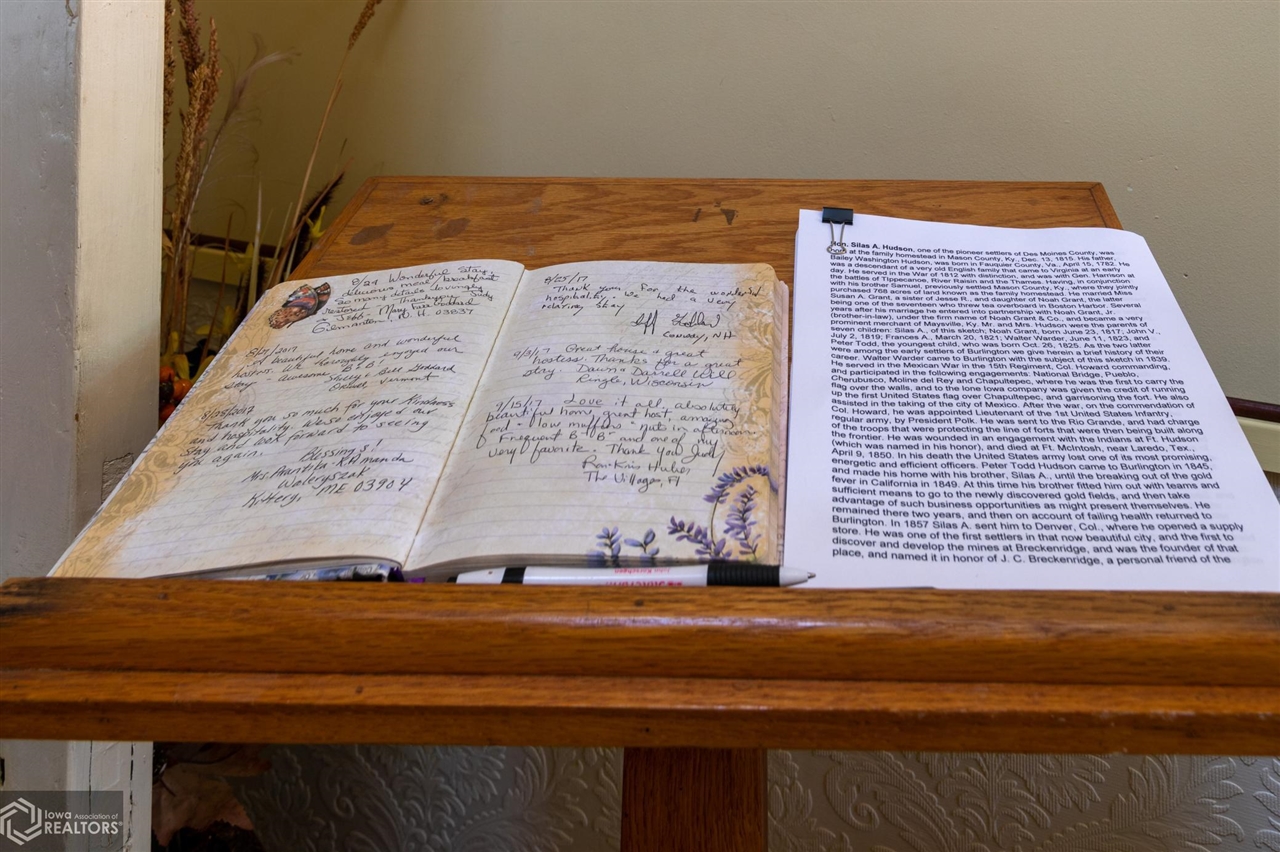 8/24 Wonderful stay,
delicious meal, breakfast
So many details lovingly
restored. Thankyou Judy
Jeff + Mary Jane
Gilmanton, N.H. 03837
8/27/2017
beautiful home and wonderful
host. We enjoyed our
stay - awesome B+B
Shelly + Bill Goddard
Vermont
8/25/2017
Thank you so much for your kindness
and hospitality. We've enjoyed our
Stay and look forward to seeing
you again.
Blessings!
Mrs.
Kittery, ME 03904
8/25/17
Thank you for the wonderful
hospitality. We had a very
relaxing stay
Canaday, NH
9/3/17 Great house & great
hostess. Thanks for a great
stay. Dawn & Darrell Will
Ringle, Wisconsin
9/15/17 Love it all, absolutely
beautiful home, great host, amazing
food - Wow muffins - Nuts in afternoon
Frequent B+B and one of my
very favorite. Thank you Judy
Ron-Kris Huber
The Villages, Fl
Hon. Silas A. Hudson, one of the pioneer settlers of Des Moines County, was
born at the family homestead in Mason County, Ky., Dec. 13, 1815. His father,
Bailey Washington Hudson, was born in Fauquier County, Va., April 15, 1782. He
was a descendant of a very old English family that came to Virginia at an early
day. He served in the War of 1812 with distinction, and was with Gen. Harrison at
the battles of Tippecanoe, River Raisin and the Thames. Having, in conjunction
with his brother Samuel, previously settled Mason County, Ky., where they jointly
purchased 768 acres of land known as the family homestead. He married Miss
Susan A. Grant, a sister of Jesse R., and daughter of Noah Grant, the latter
being one of the seventeen who threw tea overboard in Boston Harbor. Several
years after his marriage he entered into partnership with Noah Grant, Jr.
(brother-in-law), under the firm name of Noah Grant & Co., and became a very
prominent merchant of Maysville, Ky. Mr. and Mrs. Hudson were the parents of
seven children: Silas A., of this sketch; Noah Grant, born June 23, 1817; John V.,
July 2, 1819; Frances A., March 20, 1821; Walter Warder, June 11, 1823, and
Peter Todd, the youngest child, who was born Oct. 26, 1825. As the two latter
were among the early settlers of Burlington we give herein a brief history of their
career. Walter Warder came to Burlington with the subject of this sketch in 1839.
He served in the Mexican War in the 15th Regiment, Col. Howard commanding,
and participated in the following engagements: National Bridge, Pueblo,
Cherubusco, Moline del Rey and Chapultepec, where he was the first to carry the
flag over the walls, and to the lone Iowa company was given the credit of running
up the first United States flag over Chapultepec, and garrisoning the fort. He also
assisted in the taking of the city of Mexico. After the war, on the commendation of
Col. Howard, he was appointed Lieutenant of the 1st United States Infantry,
regular army, by President Polk. He was sent to the Rio Grande, and had charge
of the troops that were protecting the line of forts that were then being built along
the frontier. He was wounded in an engagement with the Indians at Ft. Hudson
(which was named in his honor), and died at Ft. McIntosh, near Laredo, Tex.,
April 9, 1850. In his death the United States army lost one of its most promising,
energetic and efficient officers. Peter Todd Hudson came to Burlington in 1845,
and made his home with his brother, Silas A., until the breaking out of the gold
fever in California in 1849. At this time his brother fitted him out with teams and
sufficient means to go to the newly discovered gold fields, and then take
advantage of such business opportunities as might present themselves. He
remained there two years, and then on account of failing health returned to
Burlington. In 1857 Silas A. sent him to Denver, Col., where he opened a supply
store. He was one of the first settlers in that now beautiful city, and the first to
discover and develop the mines at Breckenridge, and was the founder of that
place, and named it in honor of J. C. Breckenridge, a personal friend of the
Iowa Association of
REALTORS®